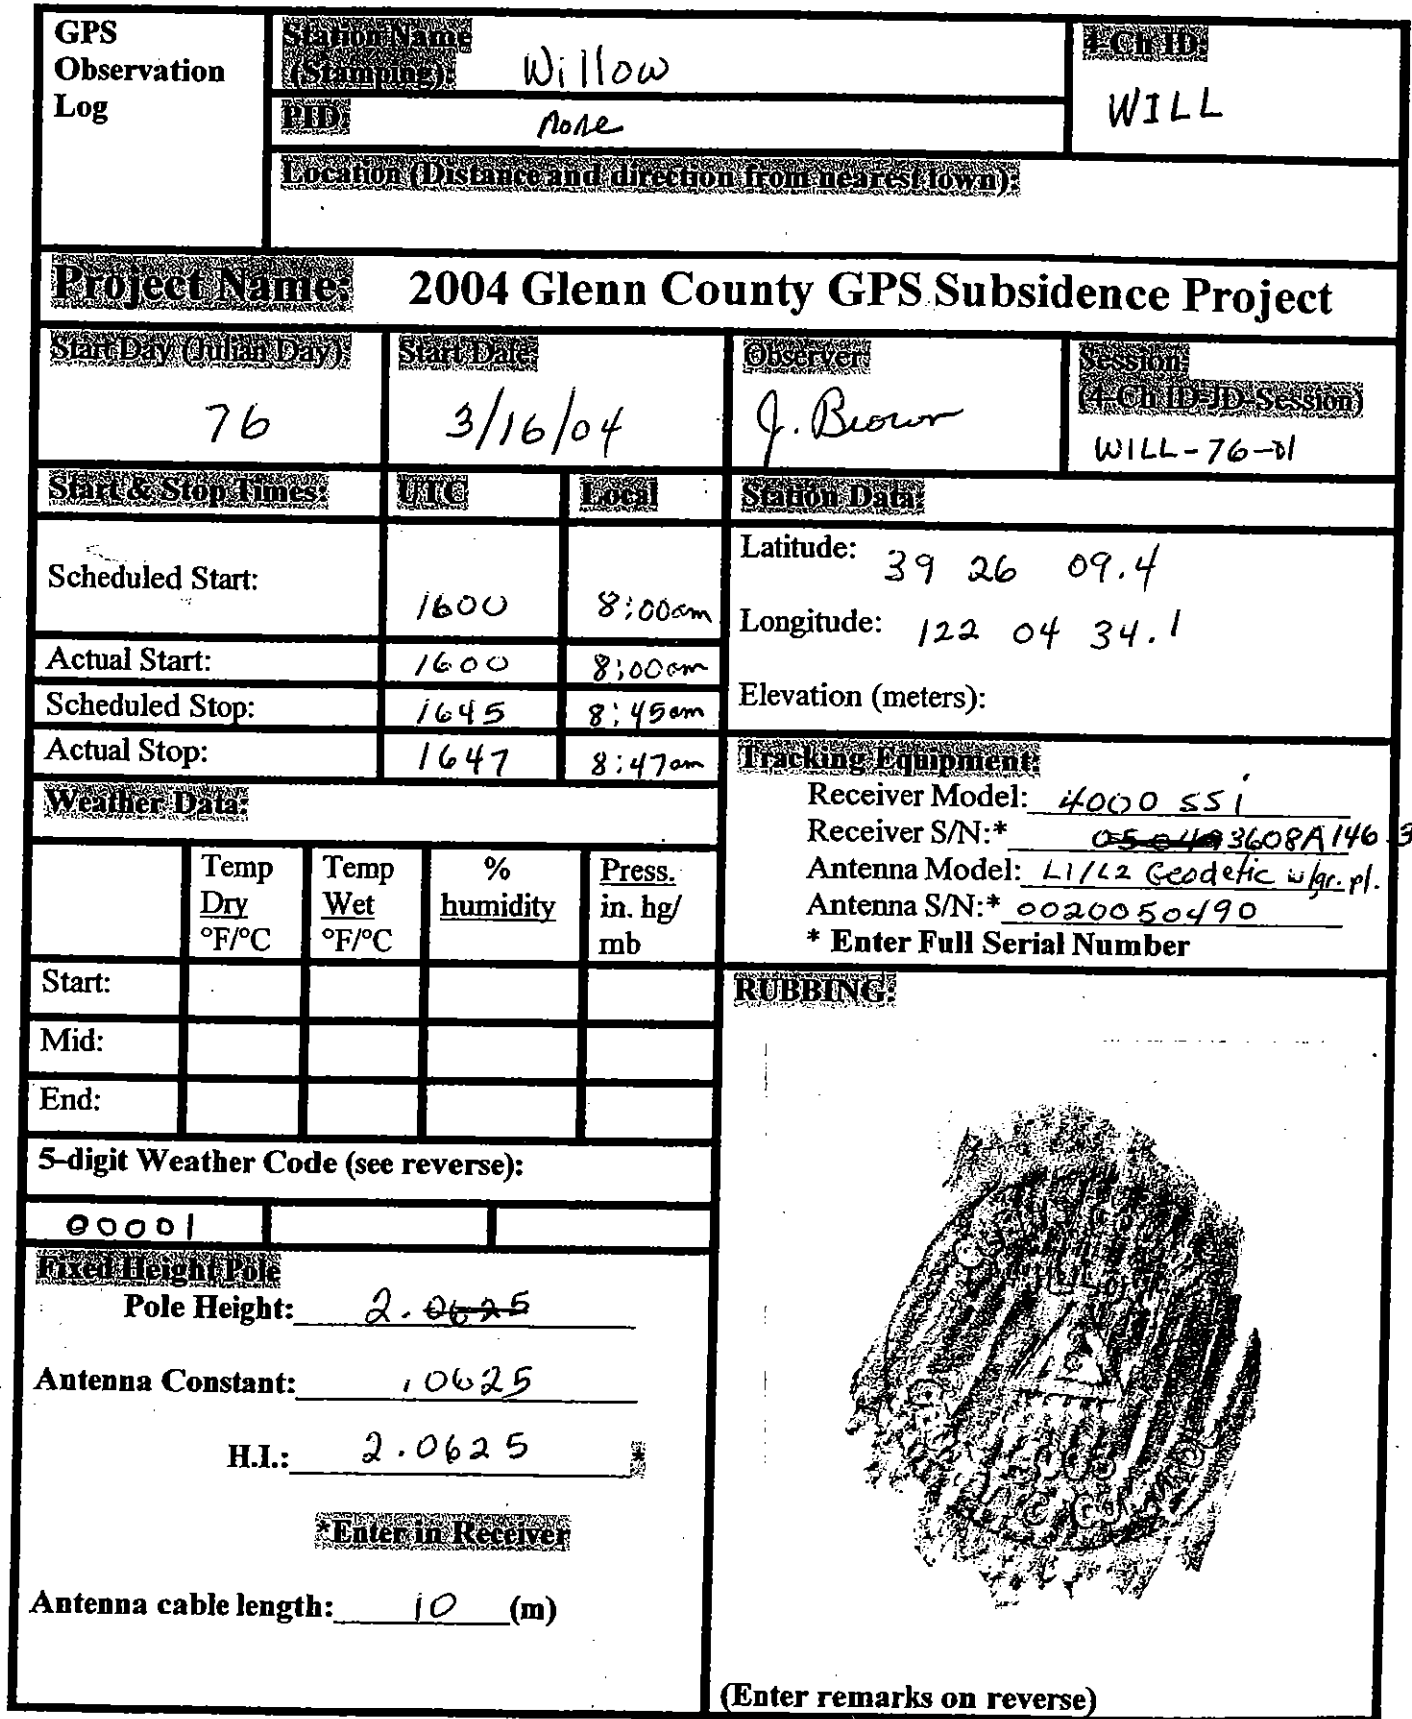 GPS
Observation
Log
Station Name
(Stamping): Willow
4-Ch ID:
WILL
PID: none
Location (Distance and direction from nearest town):
Project Name: 2004 Glenn County GPS Subsidence Project
Start Day (Julian Day):
76
Start Date:
3/16/04
Observer:
J. Brown
Session:
(4-Ch ID-JD-Session)
WILL-76-01
Start & Stop Times: UTC Local
Scheduled Start: 1600 8:00am
Actual Start: 1600 8:00am
Scheduled Stop: 1645 8:45am
Actual Stop: 1647 8:47am
Station Data:
Latitude: 39 26 09.4
Longitude: 122 04 34.1
Elevation (meters):
Tracking Equipment:
Receiver Model: 4000 SSi
Receiver S/N:* 3608A146 3
Antenna Model: L1/L2 Geodetic w/gr. pl.
Antenna S/N:* 0020050490
* Enter Full Serial Number
Weather Data:
Temp
Dry
°F/°C
Temp
Wet
°F/°C
%
humidity
Press.
in. hg/
mb
Start:
Mid:
End:
5-digit Weather Code (see reverse):
00001
Fixed Height Pole
Pole Height: 2.0625
Antenna Constant: .0625
H.I.: 2.0625 *
*Enter in Receiver
Antenna cable length: 10 (m)
RUBBING:
(Enter remarks on reverse)